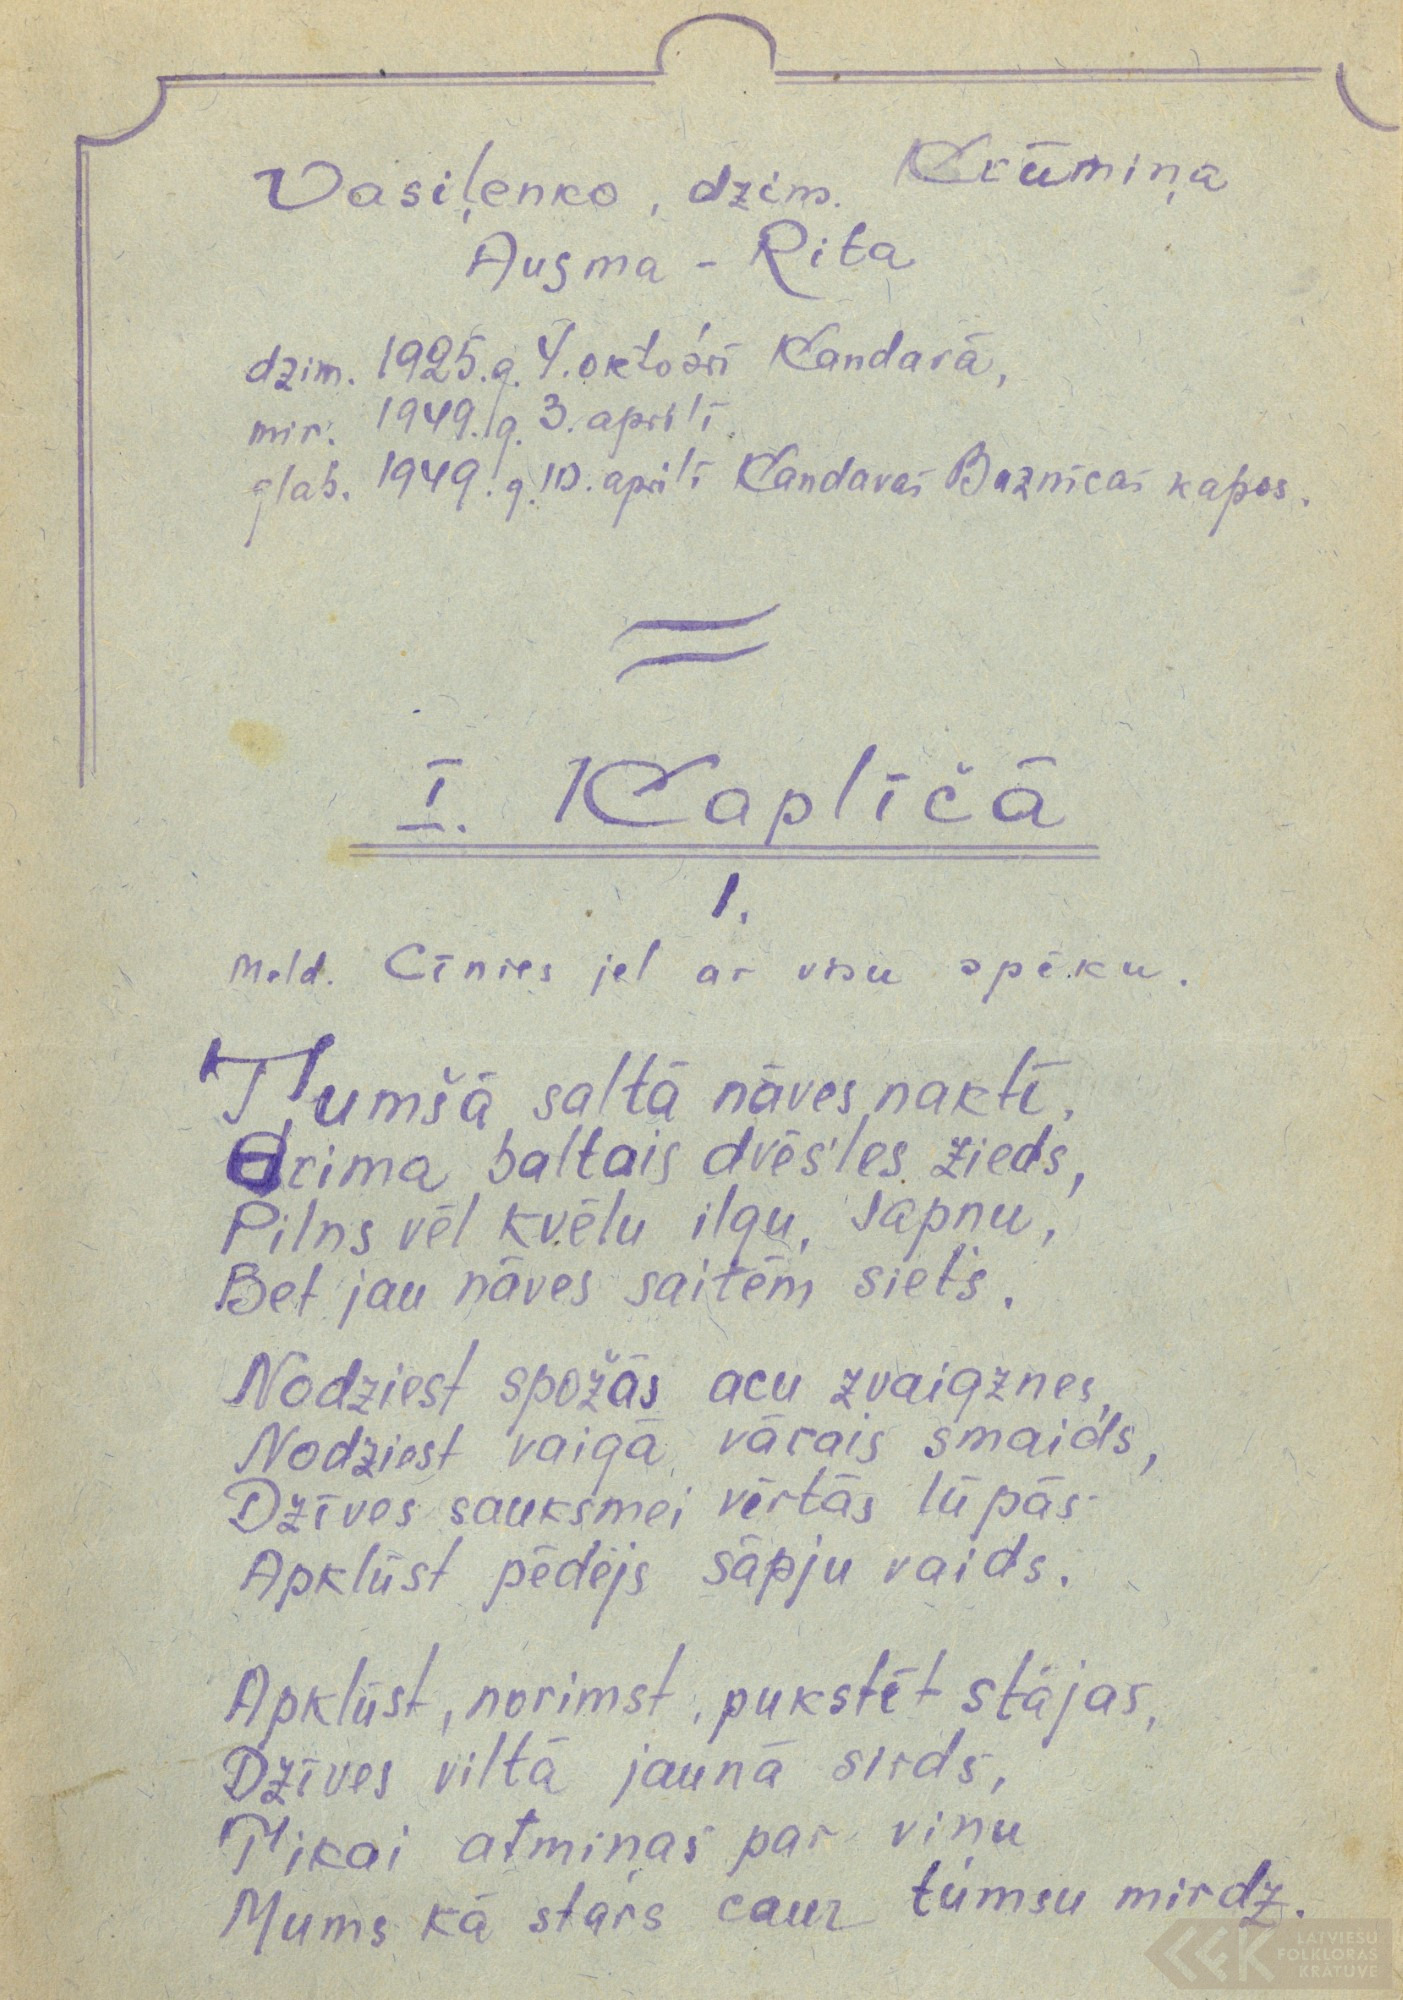 Vasiļenko, dzim. Krūmiņa
Ausma - Rita
dzim. 1925.g. 4. oktobrī Kandavā,
mir. 1949.g. 3. aprilī.
glab. 1949.g. 10. aprilī Kandavas Baznīcas kapos.
I. Kapličā
1.
Meld. Cīnies jel ar visu spēku.
Tumšā saltā nāves naktī,
Grima baltais dvēs'les zieds,
Pilns vēl kvēlu ilgu, sapņu,
Bet jau nāves saitēm siets.
Nodziest spožās acu zvaigznes,
Nodziest vaigā vārais smaids,
Dzīves sauksmei vērtās lūpās
Apklūst pēdējs sāpju vaids.
Apklūst, norimst, pukstēt stājas,
Dzīves viltā jaunā sirds,
Tikai atmiņas par viņu
Mums kā stars caur tumsu mirdz.
LATVIEŠU
FOLKLORAS
KRĀTUVE